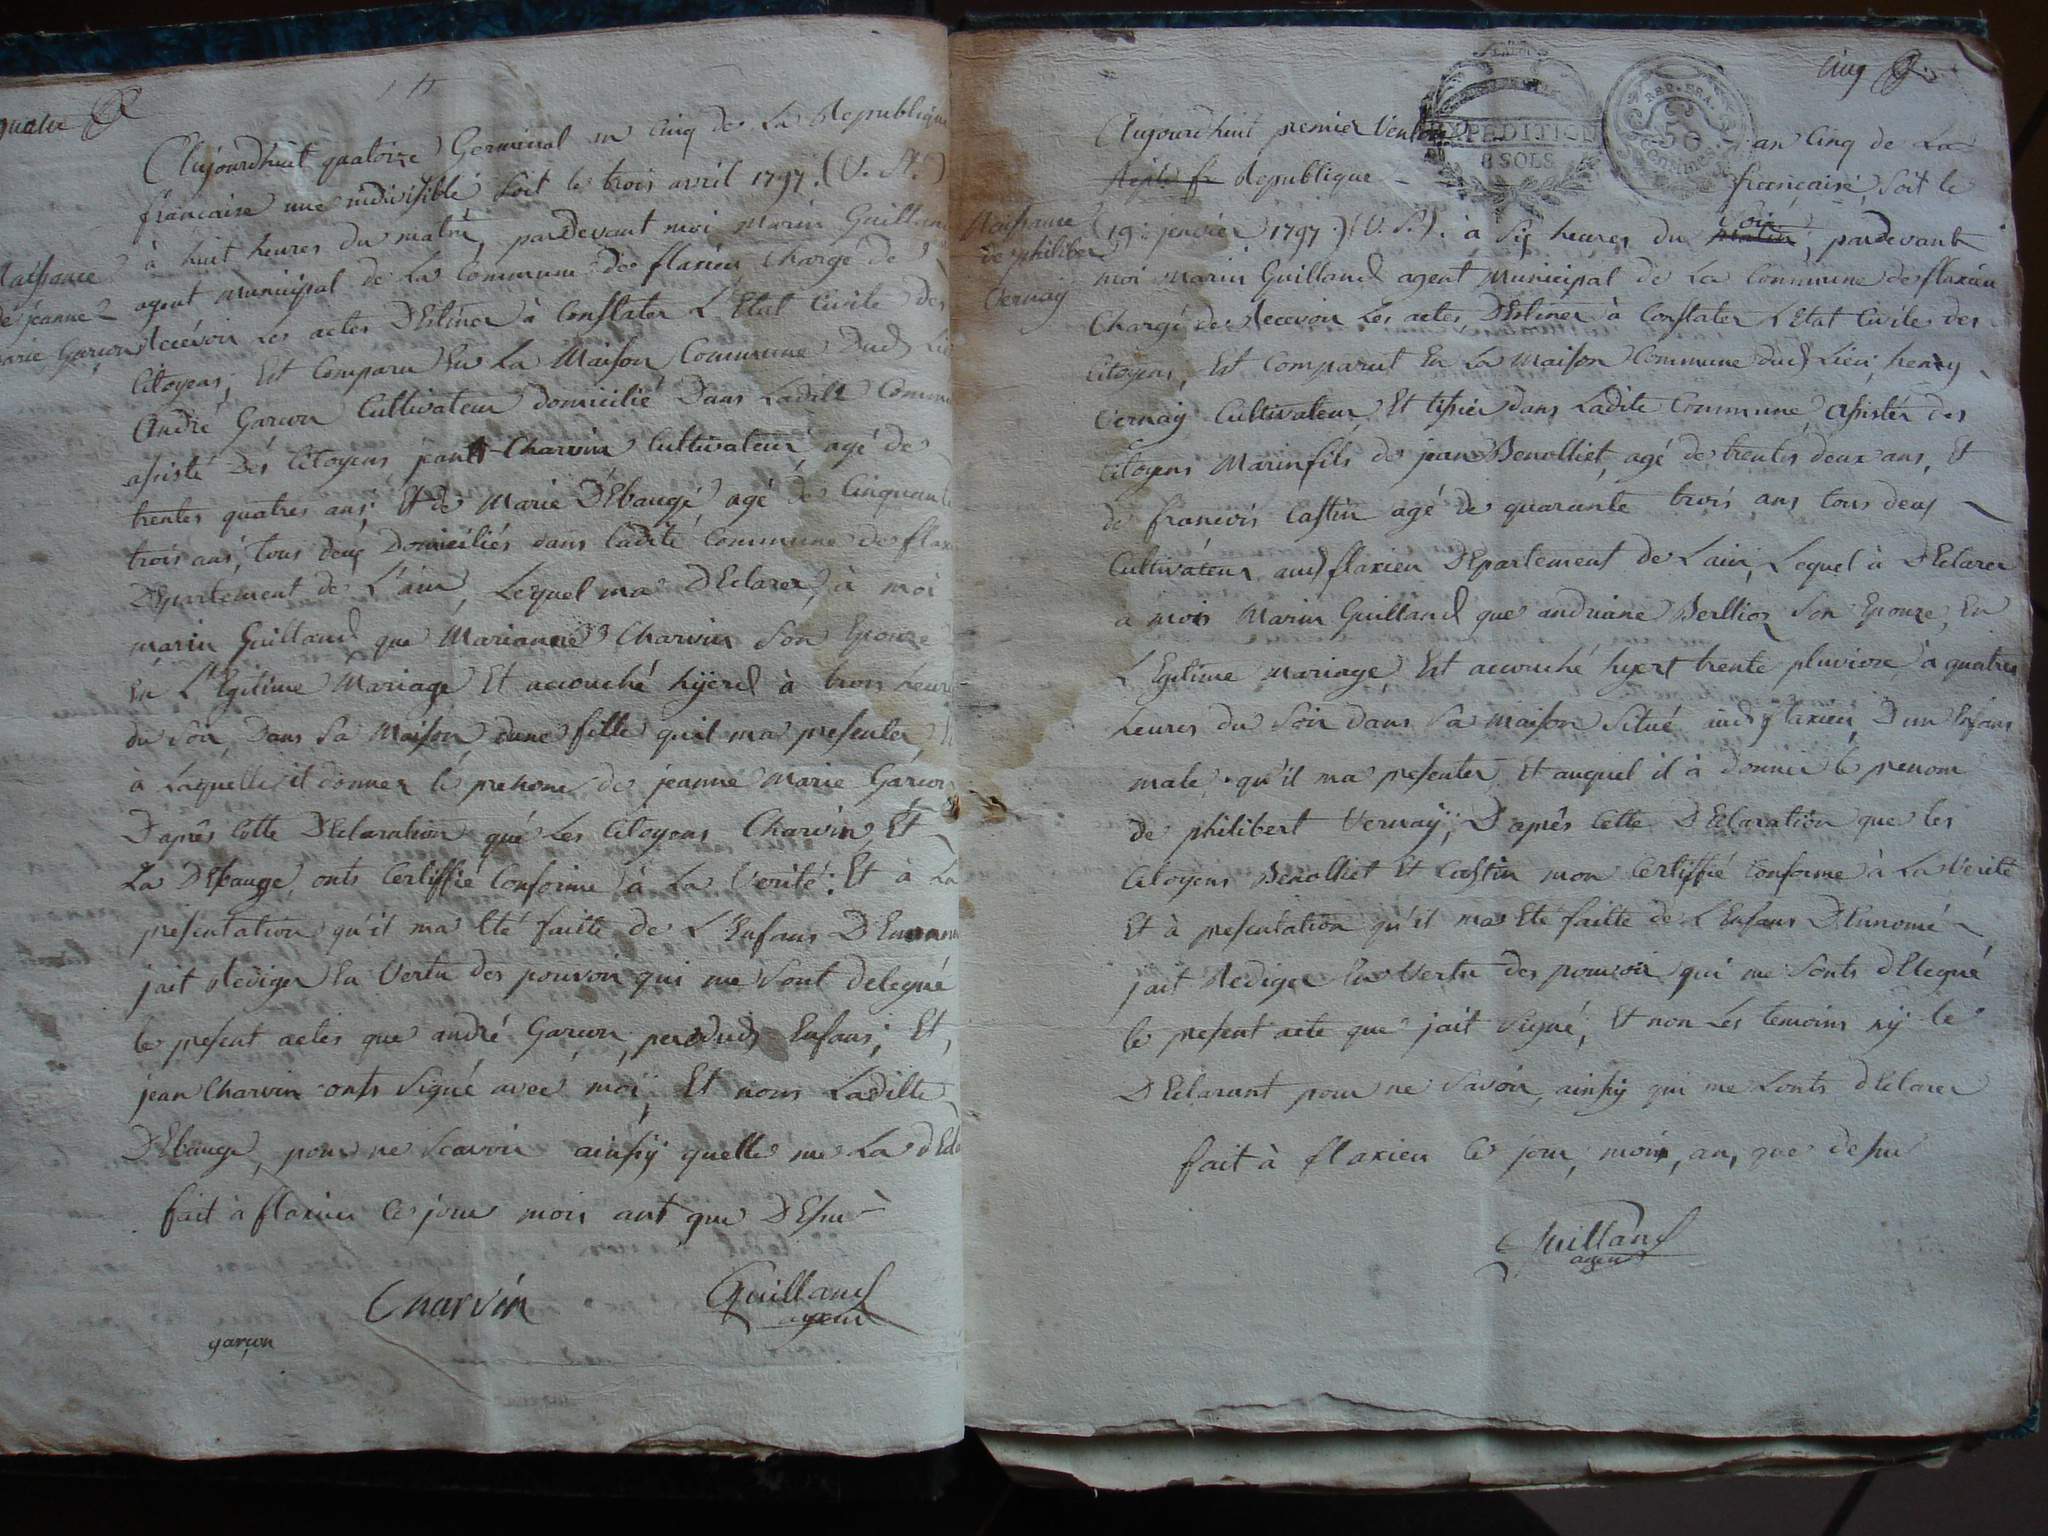 quatre
Aujourdhuit quatorze Germinal en Cinq de La Republique
francaise une indivisible soit le trois avril 1797. (V. St.)
Naissance
de jeanne
marie Garçon
à huit heures du matin, pardevant moi Marin Guilland
agent Municipal de La Commune de flaxieu Chargé de
Recévoir Les actes DEstiner à Constater L'Etat Civile des
Citoyens; Est Comparu En La Maison Commune dud Lieu
André Garcon Cultivateur domicilié Dans Ladite Commune
assisté Dés Citoyens jean Charvin Cultivateur, agé de
trentes quatres ans; Et de Marie DEbaugé, agé de Cinquante
trois ans, tous deux Domiciliés dans ladite Commune de flaxieu
DEpartement de L'ain, Lequel ma DEclarer, à moi
marin Guilland que Marianne Charvin son Epouze
En L'Egitime Mariage Et accouché hyerd à trois heures
du Soir, Dans Sa Maison, dune fille quil ma presenter,
à Laquelle il donner le prenome de jeanne Marie Garcon
D'après Cette DEclaration qué Les Citoyens Charvin, Et
La DEbauge, onts Certiffié Conforme à La Verité: Et à La
presentation qu'il ma Eté faitte de L'Enfans DEnnomé
jait Rediger En Vertu des pouvoir qui me Sont delegué
le present actes que andré Garcon, peredud Enfans; Et,
jean Charvin onts Signé avec moi; Et nons Laditte
DEbauge, pour ne Scavoir ainsy quelle me La dEcla
fait à flaxieu Ce jour mois ant que DEssu
Charvin Guilland
agent
garçon
Cinq
EXPEDITION
8 SOLS
REP. FRA.
50
centimes
Aujourdhuit premier Ventose an Cinq de La
Republique françaisé, soit le
Naissance
de philibert
Vernay
(19: janvier 1797.) (V. S.). à Six heures du matin Soir, pardevant
moi Marin Guilland agent Municipal de La Commune de flaxieu
Chargé de Recevoir Les actes, DEstiner à Constater L'Etat Civile des
Citoyens, Est Comparut En La Maison Commune dud Lieu; henry
Vernay Cultivateur, Et tissier dans Ladite Commune, assister des
Citoyens Marin fils de jean Benolliet, agé de trentes deux ans, Et
de francois Castin agé de quarante trois ans tous deux
Cultivateur aud flaxieu DEpartement de L'ain, Lequel à DEclarer
a mois Marin Guilland que andriane Berllioz Son Epouze, En
L'Egitime Mariage, Est accouché hyert trente pluvioze, à quatres
heures du Soir dans Sa Maison Situé aud flaxieu, Dun Enfans
male, qu'il ma presenter, Et auquel il à donner le prenom
de philibert Vernay; D'après Cette DEclaration que les
Citoyens Benolliet Et Castin mon Certiffié Conforme à La Verité
Et à presentation qu'il ma Eté faitte de L'Enfans DEnnomé
jait Rediger En Vertu des pouvoir qui me Sonts dElegué
le present acte que jait Signé; Et non Les temoins ny le
DEclarant pour ne Savoir, ainsy qui me Lonts dEclarer
fait à flaxieu Ce jour, mois, an, que dessu
Guilland
agent